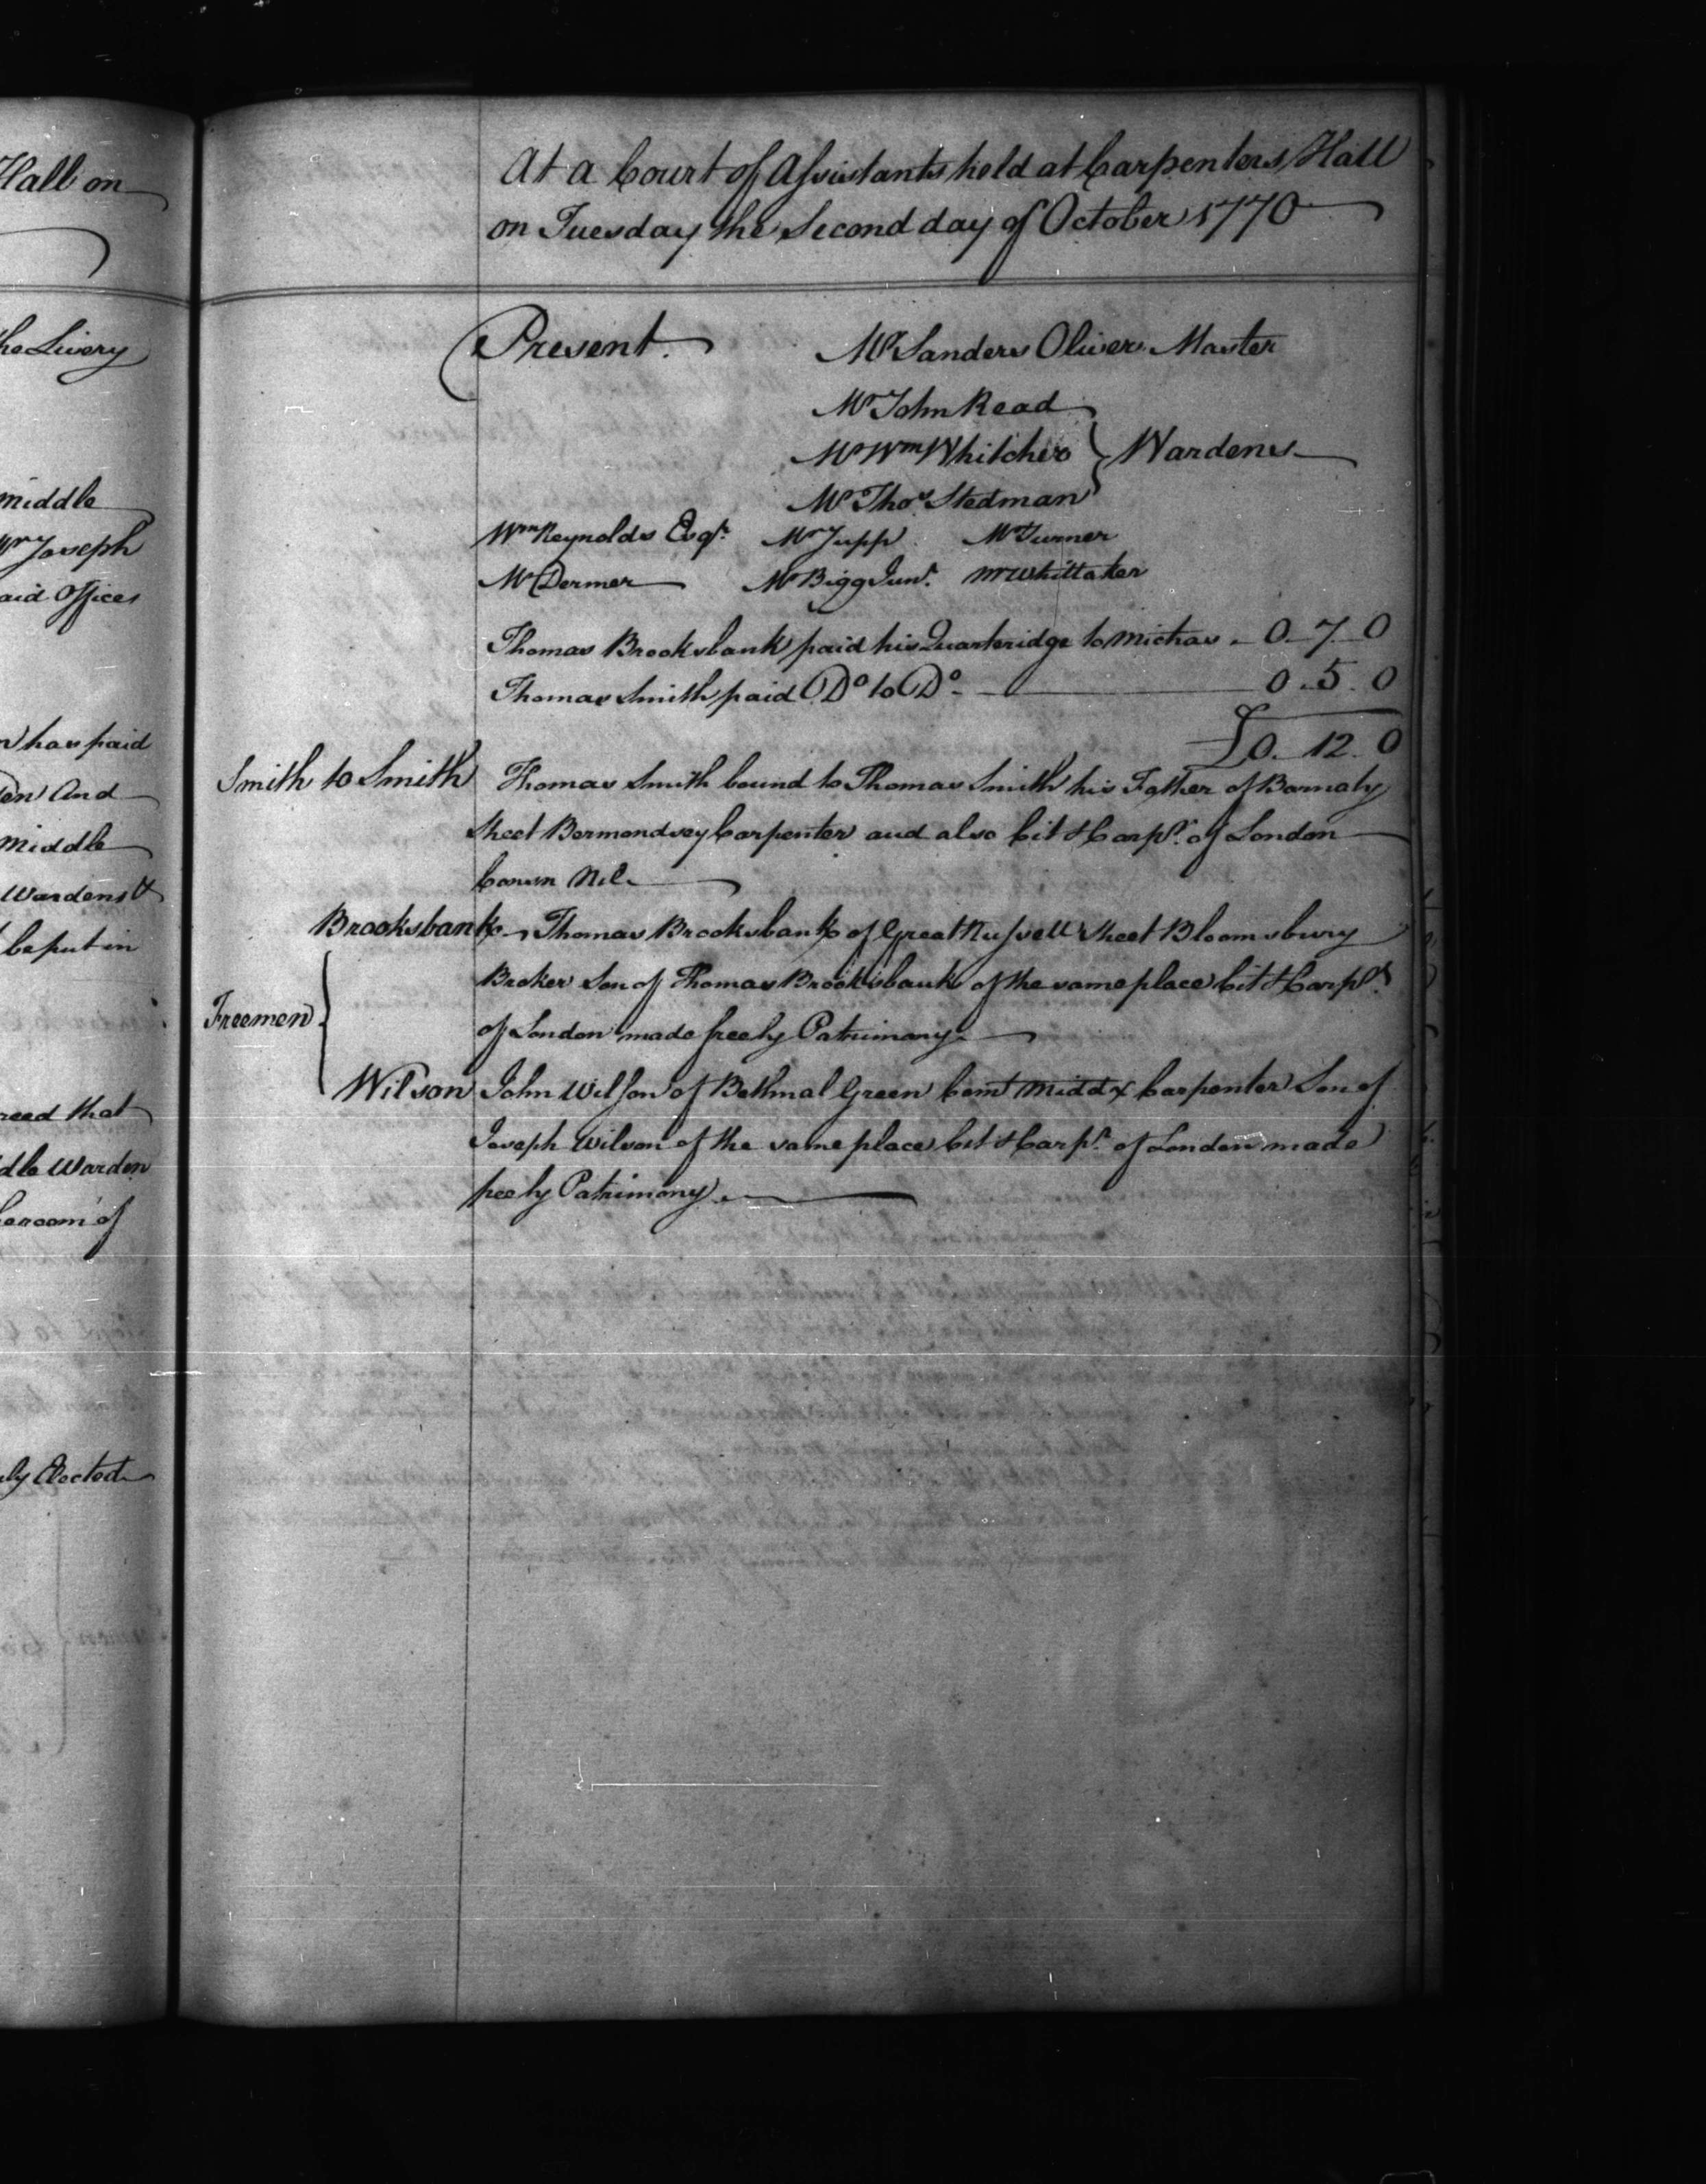 Hall on
he Livery
middle
Mr Joseph
aid Offices
n has paid
en And
Middle
Wardens &
be put in
reed that
dle Warden
he room of
ly Elected
At a Court of Assistants held at Carpenters Hall
on Tuesday the Second day of October 1770
Present.
Mr Sanders Oliver Master
Mr John Read
Mr Wm Whitcher } Wardens
Mr Thos Stedman
Wm Reynolds Esqr. Mr Jupp Mr Turner
Mr Dermer Mr Bigg Junr. Mr Whittaker
Thomas Brooksbank paid his Quarteridge to Michas - 0 - 7 - 0
Thomas Smith paid Do to Do - 0 . 5 . 0
£0 . 12 . 0
Smith to Smith Thomas Smith bound to Thomas Smith his Father of Barnaby
Street Bermondsey Carpenter and also Cit & Carpr. of London
Conson Nil
Brooksbank Thomas Brooksbank of Great Russell Street Bloomsbury
Broker Son of Thomas Brooksbank of the same place Cit & Carpr.
Freemen } of London made free by Patrimony
Wilson John Wilson of Bethnal Green Com Middx Carpenter Son of
Joseph Wilson of the same place Cit & Carpr. of London made
free by Patrimony